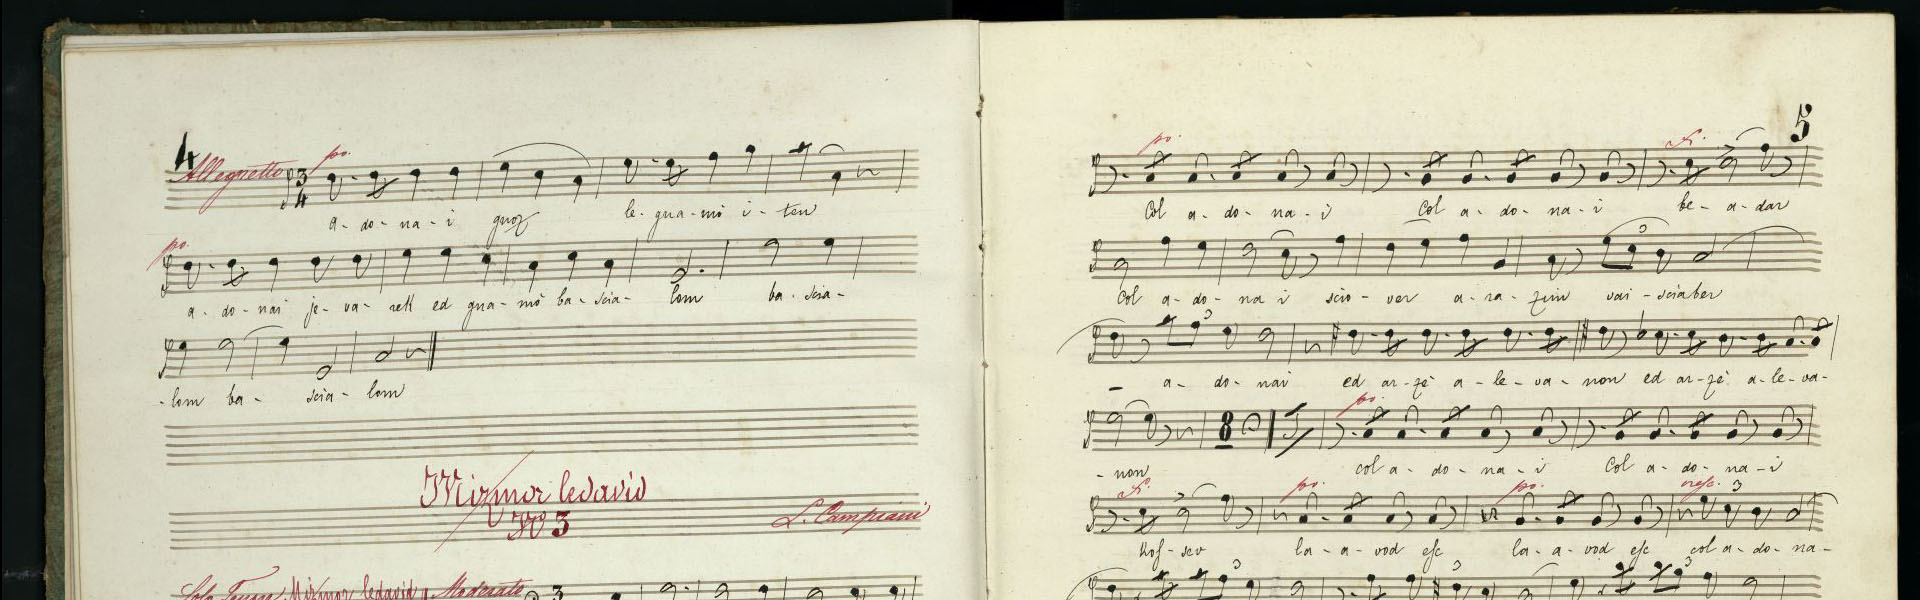 4
Allegretto 3/4 po.
a - do - na - i le - gna - mó i - ten
po.
a - do - nai je - va - reh ed gna - mó ba - scia - lom ba - scia -
- lom ba - scia - lom
Mizmor ledavid
N° 3
L. Campiani
Solo Tenore Mizmor ledavid Moderato 3
5
po. F.
Col a - do - na - i Col a - do - na - i be - a - dar
3
Col a - do - na i scio - ver a - ra - zim vai - sciaber
3
- a - do - nai ed ar - zé a - le - va - non ed ar - zé a - le - va -
8 po.
- non col a - do - na - i Col a - do - na - i
F. po. po. cresc. 3
la - a - vod esc la - a - vod esc col a - do - na -
3 3 3